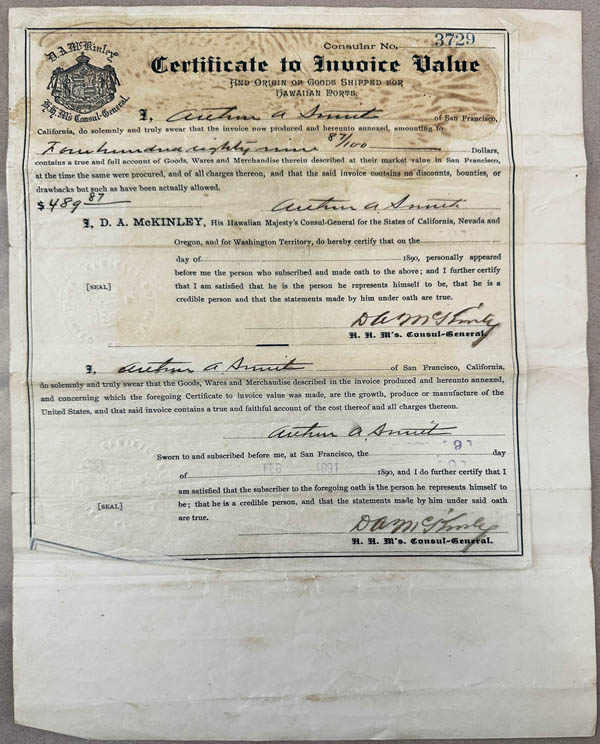 D.A. McKinley
H.H.M's Consul-General.
Consular No. 3729
Certificate to Invoice Value
AND ORIGIN OF GOODS SHIPPED FOR
HAWAIIAN PORTS.
I, Arthur A Smith of San Francisco,
California, do solemnly and truly swear that the invoice now produced and hereunto annexed, amounting to
Four hundred eighty nine 87/100 Dollars,
contains a true and full account of Goods, Wares and Merchandise therein described at their market value in San Francisco,
at the time the same were procured, and of all charges thereon, and that the said invoice contains no discounts, bounties, or
drawbacks but such as have been actually allowed.
$489 87
Arthur A Smith
I, D. A. McKINLEY, His Hawaiian Majesty's Consul-General for the States of California, Nevada and
Oregon, and for Washington Territory, do hereby certify that on the
day of 1890, personally appeared
before me the person who subscribed and made oath to the above; and I further certify
that I am satisfied that he is the person he represents himself to be, that he is a
credible person and that the statements made by him under oath are true.
[SEAL]
D A McKinley
H. H. M's. Consul-General.
I, Arthur A Smith of San Francisco, California,
do solemnly and truly swear that the Goods, Wares and Merchandise described in the invoice produced and hereunto annexed,
and concerning which the foregoing Certificate to invoice value was made, are the growth, produce or manufacture of the
United States, and that said invoice contains a true and faithful account of the cost thereof and all charges thereon.
Arthur A. Smith
Sworn to and subscribed before me, at San Francisco, the day
of FEB 1891 1890, and I do further certify that I
am satisfied that the subscriber to the foregoing oath is the person he represents himself to
be; that he is a credible person, and that the statements made by him under said oath
are true.
[SEAL]
D A McKinley
H. H. M's. Consul-General.